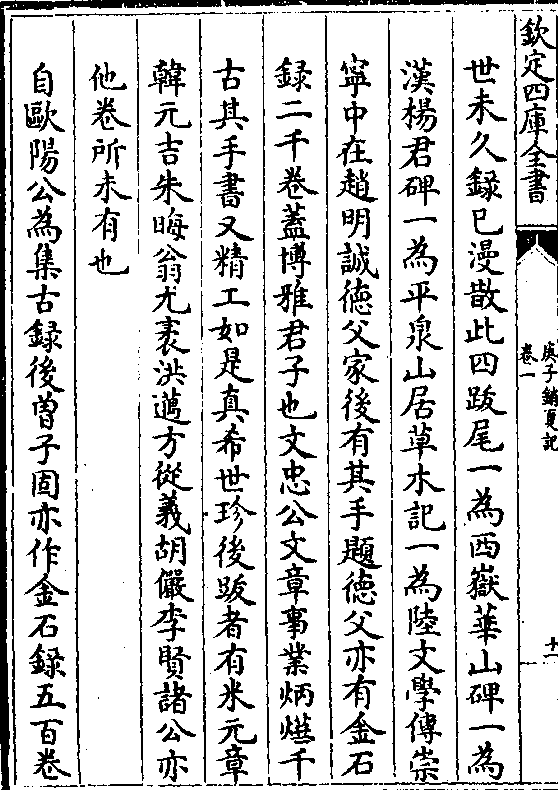 欽定四庫全書
庚子銷夏記
卷一
十一
世未久録已漫散此四跋尾一為西嶽華山碑一為
漢楊君碑一為平泉山居草木記一為陸文學傳崇
寧中在趙明誠徳父家後有其手題徳父亦有金石
録二千卷葢博雅君子也文忠公文章事業炳燿千
古其手書又精工如是真希世珍後跋者有米元章
韓元吉朱晦翁尤袤洪邁方從義胡儼李賢諸公亦
他卷所未有也
自歐陽公為集古録後曾子固亦作金石録五百卷